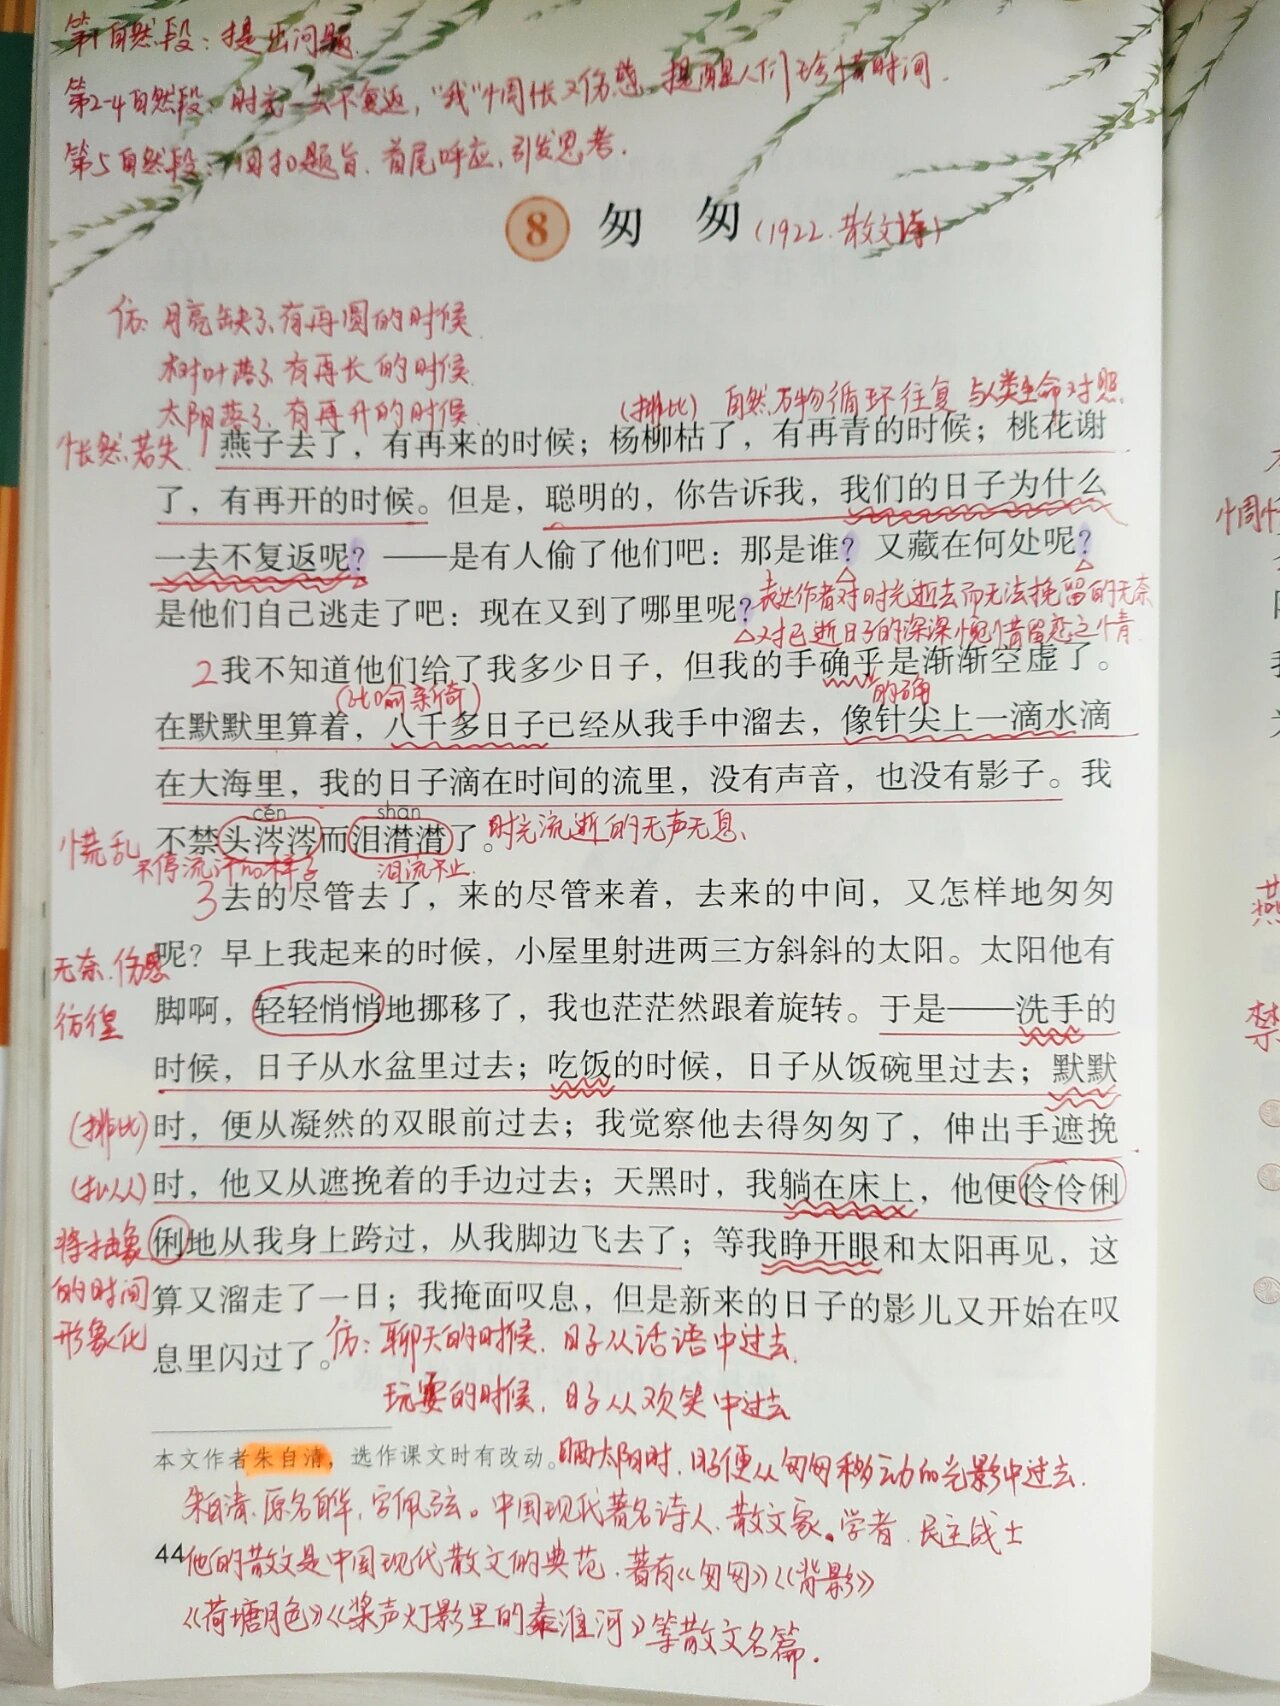 第1自然段：提出问题.
第2-4自然段：时光一去不复返，"我"惆怅又伤感，提醒人们珍惜时间.
第5自然段：回扣题旨、首尾呼应，引发思考.
8 匆 匆 (1922. 散文诗)
仿：月亮缺了、有再圆的时候.
树叶落了、有再长的时候.
太阳落了、有再升的时候.
(排比) 自然万物循环往复 与人类生命对照.
怅然若失 燕子去了，有再来的时候；杨柳枯了，有再青的时候；桃花谢
了，有再开的时候。但是，聪明的，你告诉我，我们的日子为什么
一去不复返呢？——是有人偷了他们吧：那是谁？又藏在何处呢？
是他们自己逃走了吧：现在又到了哪里呢？
表达作者对时光逝去而无法挽留的无奈
又对已逝日子的深深惋惜留恋之情
2 我不知道他们给了我多少日子，但我的手确乎是渐渐空虚了。
(比喻新奇) 的确
在默默里算着，八千多日子已经从我手中溜去，像针尖上一滴水滴
在大海里，我的日子滴在时间的流里，没有声音，也没有影子。我
cén shān
慌乱 不禁头涔涔而泪潸潸了。时光流逝的无声无息、
不停流汗的样子 泪流不止.
3 去的尽管去了，来的尽管来着，去来的中间，又怎样地匆匆
无奈.伤感 呢？早上我起来的时候，小屋里射进两三方斜斜的太阳。太阳他有
彷徨 脚啊，轻轻悄悄地挪移了，我也茫茫然跟着旋转。于是——洗手的
时候，日子从水盆里过去；吃饭的时候，日子从饭碗里过去；默默
(排比) 时，便从凝然的双眼前过去；我觉察他去得匆匆了，伸出手遮挽
(拟人) 时，他又从遮挽着的手边过去；天黑时，我躺在床上，他便伶伶俐
将抽象 俐地从我身上跨过，从我脚边飞去了；等我睁开眼和太阳再见，这
的时间 算又溜走了一日；我掩面叹息，但是新来的日子的影儿又开始在叹
形象化 息里闪过了。仿：聊天的时候、日子从话语中过去.
玩耍的时候、日子从欢笑中过去
本文作者朱自清，选作课文时有改动。晒太阳时，日子便从匆匆移动的光影中过去.
朱自清、原名自华，字佩弦。中国现代著名诗人、散文家。学者、民主战士
44 他的散文是中国现代散文的典范，著有《匆匆》《背影》
《荷塘月色》《桨声灯影里的秦淮河》等散文名篇.
惆
燕
禁